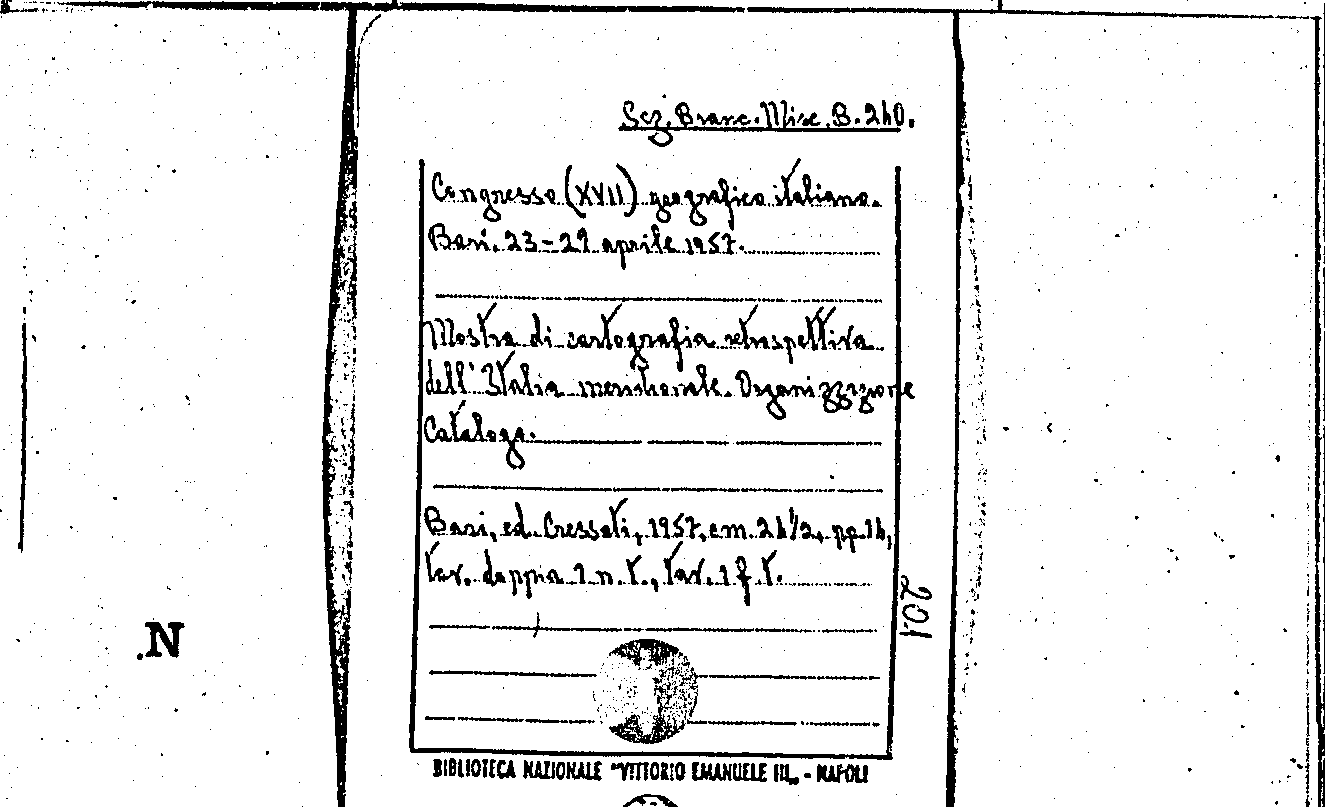 Sez. Branc. Misc. B. 240.
Congresso (XVII) geografico italiano.
Bari. 23-29 aprile 1957.
Mostra di cartografia retrospettiva
dell'Italia meridionale. Organizzazione
Catalogo.
Bari, ed. Cressati, 1957, cm. 24 1/2, pp. 14,
tav. doppia 1 n. t., tav. 1 f. t.
201
N
BIBLIOTECA NAZIONALE "VITTORIO EMANUELE III„ - NAPOLI